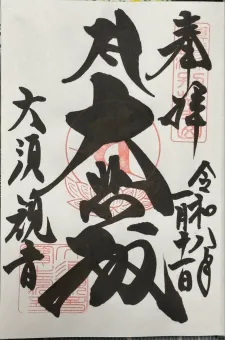 奉拝
令和八年
一月十一日
大悲殿
大須観音